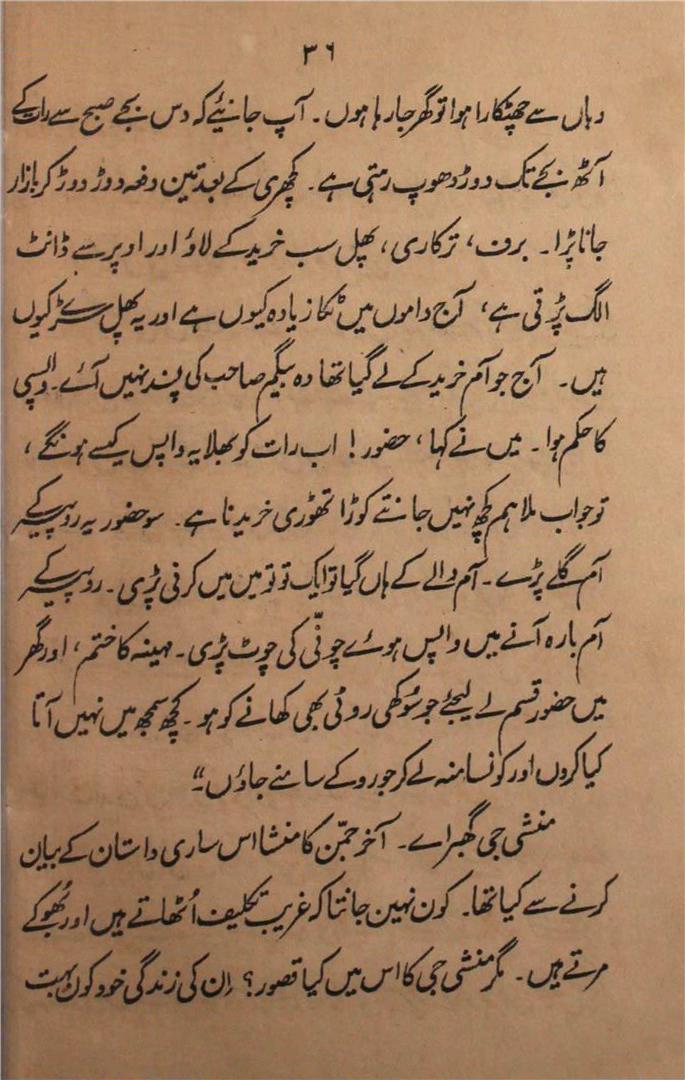 ۳۶
وہاں سے چھٹکارا ہوا تو گھر جا رہا ہوں۔ آپ جانیئے کہ دس بجے صبح سے رات کے
آٹھ بجے تک دوڑ دھوپ رہتی ہے۔ کچہری کے بعد تین دفعہ دوڑ دوڑ کر بازار
جانا پڑا۔ برف، ترکاری، پھل سب خرید کے لاؤ اور اوپر سے ڈانٹ
الگ پڑتی ہے، آج داموں میں ٹکا زیادہ کیوں ہے اور یہ پھل سڑے کیوں
ہیں۔ آج جو آم خرید کے لے گیا تھا وہ بیگم صاحب کی پسند نہیں آئے۔ واپسی
کا حکم ہوا۔ میں نے کہا، حضور! اب رات کو بھلا یہ واپس کیسے ہونگے،
تو جواب ملا ہم کچھ نہیں جانتے کوڑا تھوڑی خریدنا ہے۔ سو حضور یہ روپیہ کے
آم گلے پڑے۔ آم والے کے ہاں گیا تو ایک تو تو میں میں کرنی پڑی۔ روپیہ کے
آم بارہ آنے میں واپس ہوئے چونّی کی چوٹ پڑی۔ مہینہ کا ختم، اور گھر
میں حضور قسم لے لیجئے جو سُوکھی روٹی بھی کھانے کو ہو۔ کچھ سمجھ میں نہیں آتا
کیا کروں اور کونسا منہ لے کر جورو کے سامنے جاؤں۔“
منشی جی گھبرائے۔ آخر جمّن کا منشا اس ساری داستان کے بیان
کرنے سے کیا تھا۔ کون نہین جانتا کہ غریب تکلیف اُٹھاتے ہیں اور بھُوکے
مرتے ہیں۔ مگر منشی جی کا اس میں کیا قصور؟ اِن کی زندگی خود کون بہت